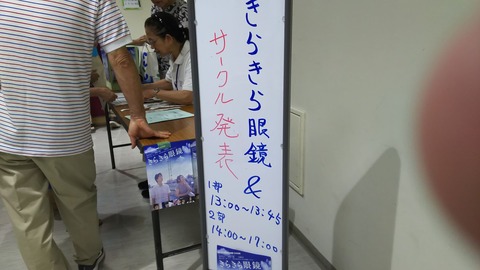 きらきら眼鏡&
サークル発表
1部
13:00~13:45
2部
14:00~17:00
きらきら眼鏡
きらきら眼鏡